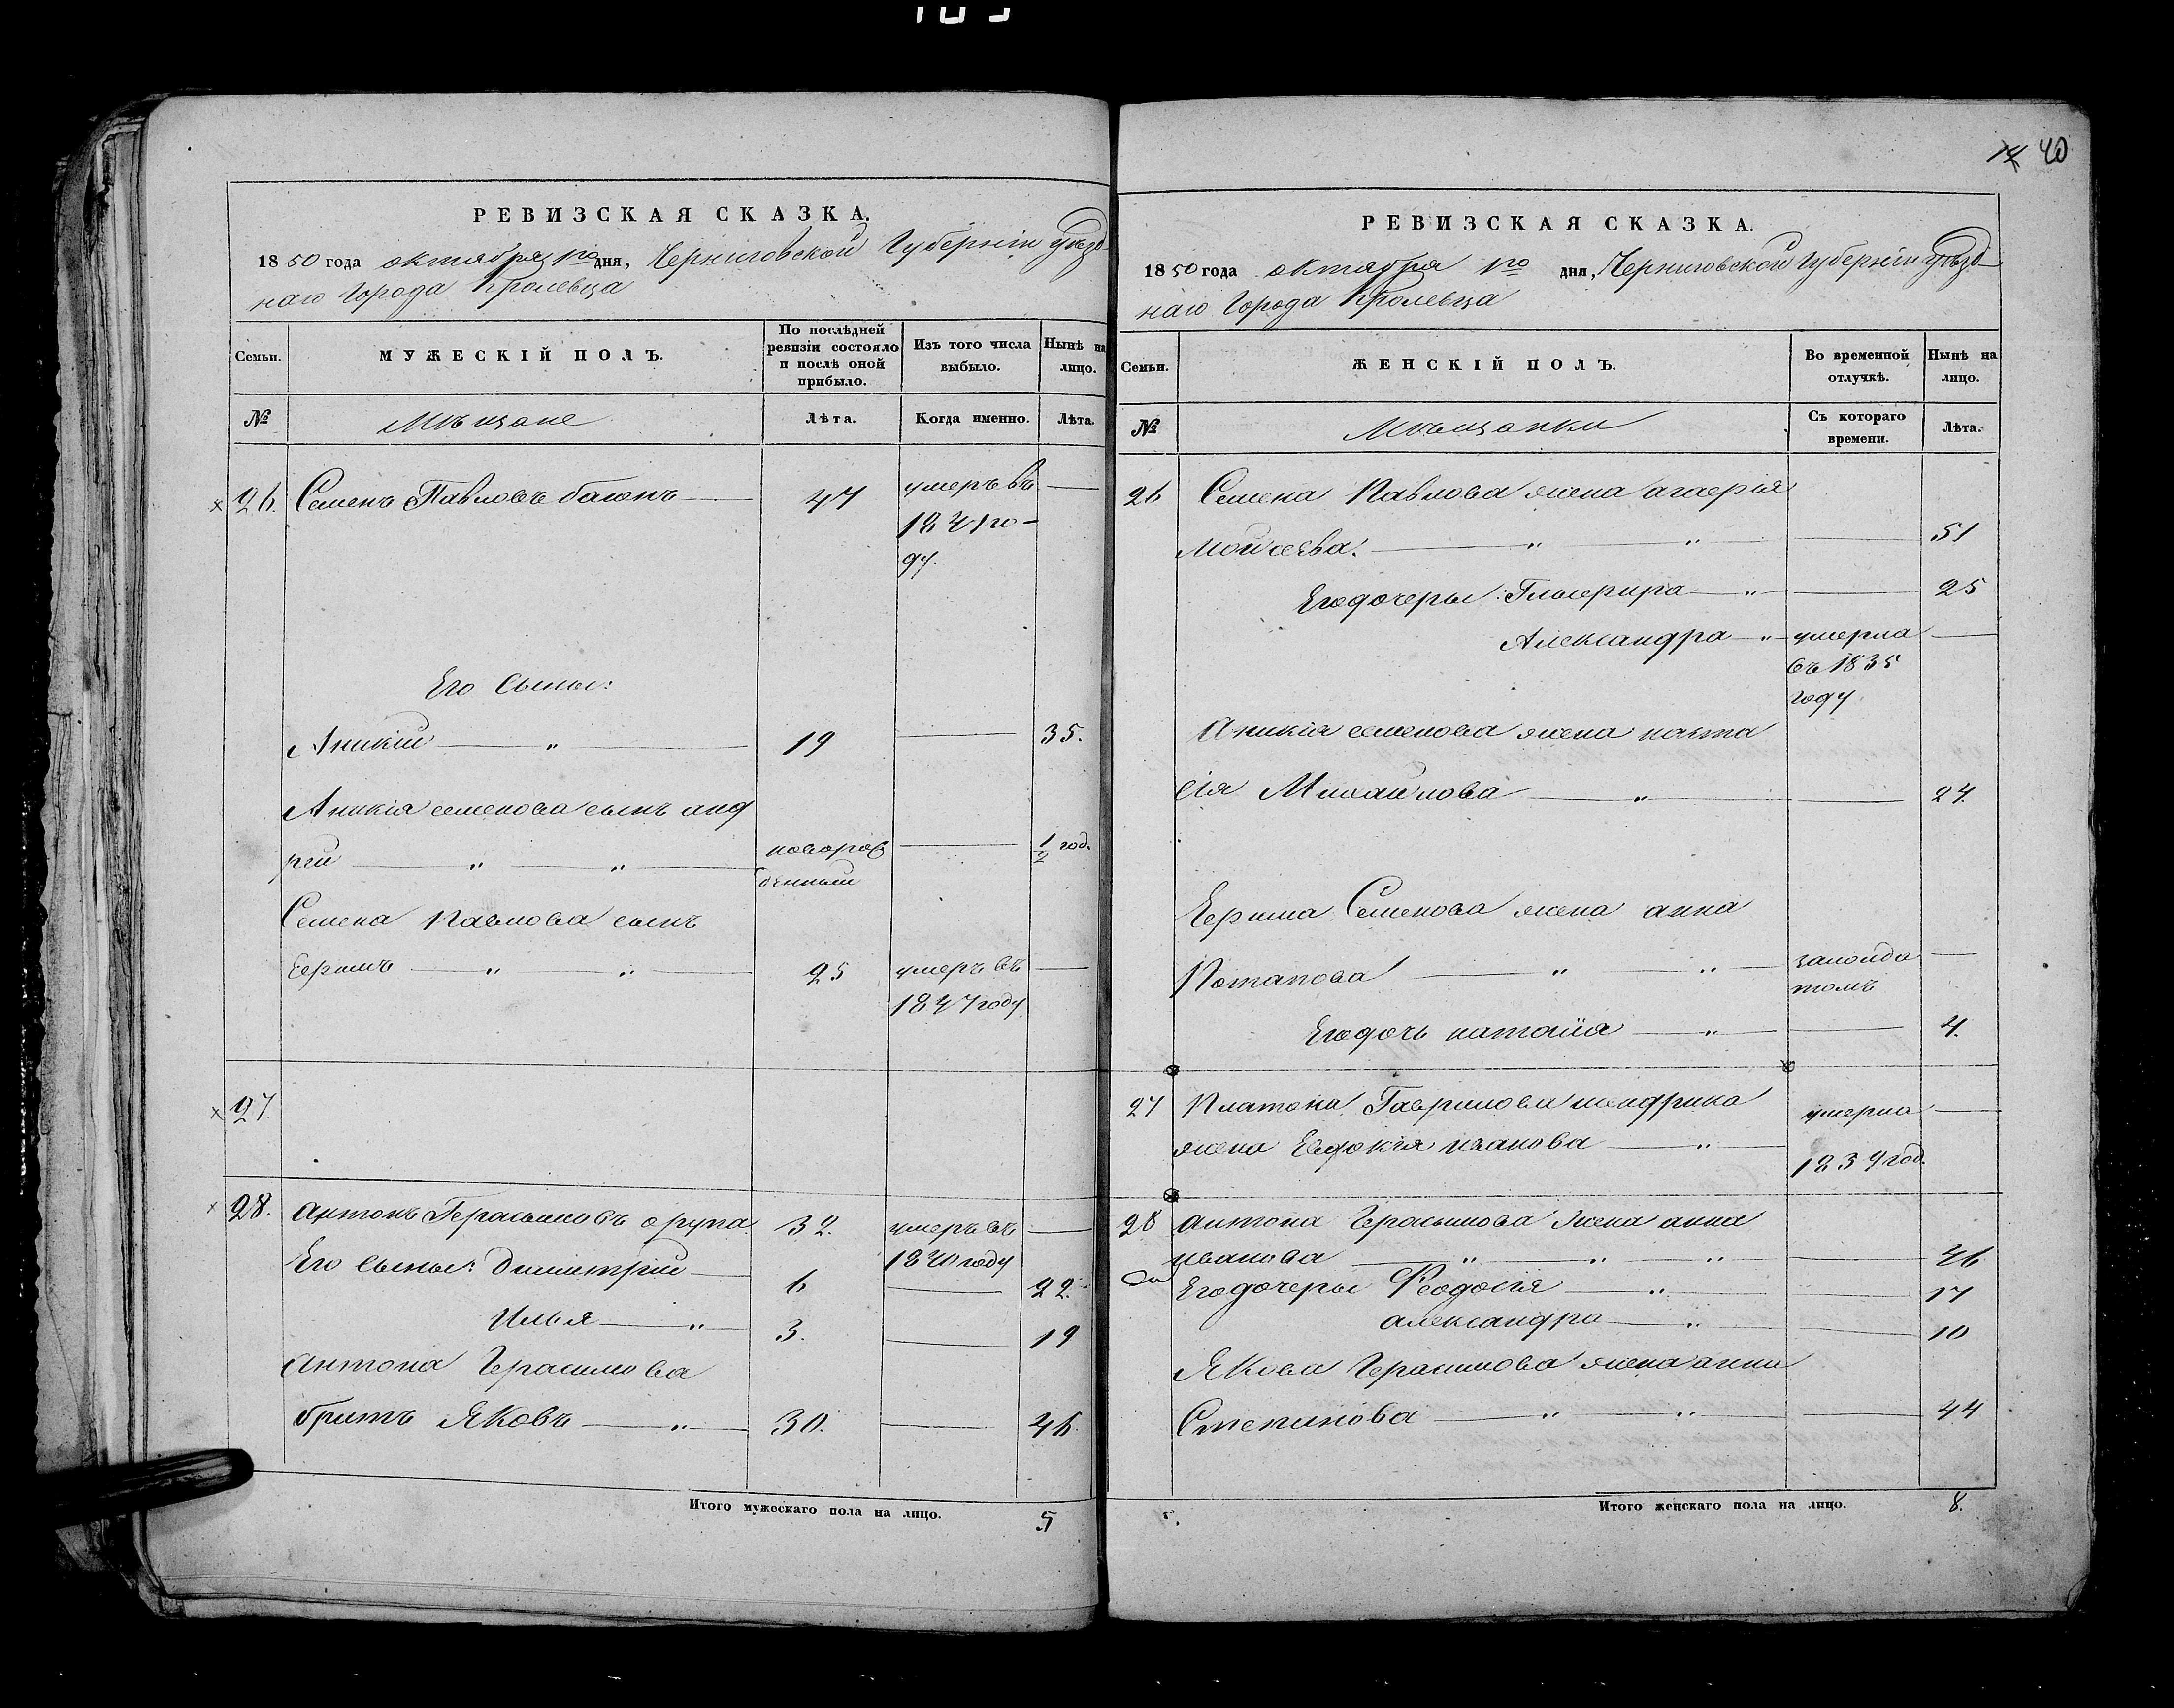 14 40
РЕВИЗСКАЯ СКАЗКА.
1850 года октября 1го дня, Черниговской Губернiи уѣзд-
наго Города Кролевца
Семьи.
МУЖЕСКІЙ ПОЛЪ.
По послѣдней ревизіи состояло и послѣ оной прибыло.
Изъ того числа выбыло.
Нынѣ на лицо.
№
Мѣщане
Лѣта.
Когда именно.
Лѣта.
26. Семенъ Павловъ баюнъ 47 умеръ въ —
184 го-
ду.
Его Сыны:
Аникiй — " — 19 — 35.
Аникiя семенова сынъ анд
рей — " — " — новорож — 1/2 год.
денный
Семена Павлова сынъ
— " — " — 25 умеръ въ —
1847 году
27.
28. Антонъ Герасимовъ 32. умеръ въ —
1840 году
Его Сыны: Димитрiй — 6 — 22.
Илья — " — 3. — 19
Антона Герасимова
братъ Яковъ — " — 30. — 46
Итого мужескаго пола на лицо. 5
РЕВИЗСКАЯ СКАЗКА.
1850 года октября 1го дня, Черниговской Губернiи уѣзд-
наго Города Кролевца
Семьи.
ЖЕНСКІЙ ПОЛЪ.
Во временной отлучкѣ.
Нынѣ на лицо.
№
Мѣщанки
Съ котораго времени.
Лѣта.
26 Семена Павлова жена
Моисеева. — " — " — 51
Его дочеры: Глафира — " — 25
Александра — " — умерла —
въ 1835
году
Аникiя семенова жена наста
сiя Михайлова — " — 24.
Семенова жена анна
Потапова — " — " —
Его дочь наталiя — " — 4.
27 Платона Гаврилова
умерла —
жена Евдокiя иванова — " —
1839 год.
28 антона Герасимова жена анна
иванова — " — " — " — 46
Его дочеры Феодосiя — " — 17
александра — " — 10
Якова Герасимова жена анна
Степанова — " — " — 44
Итого женскаго пола на лицо. 8.